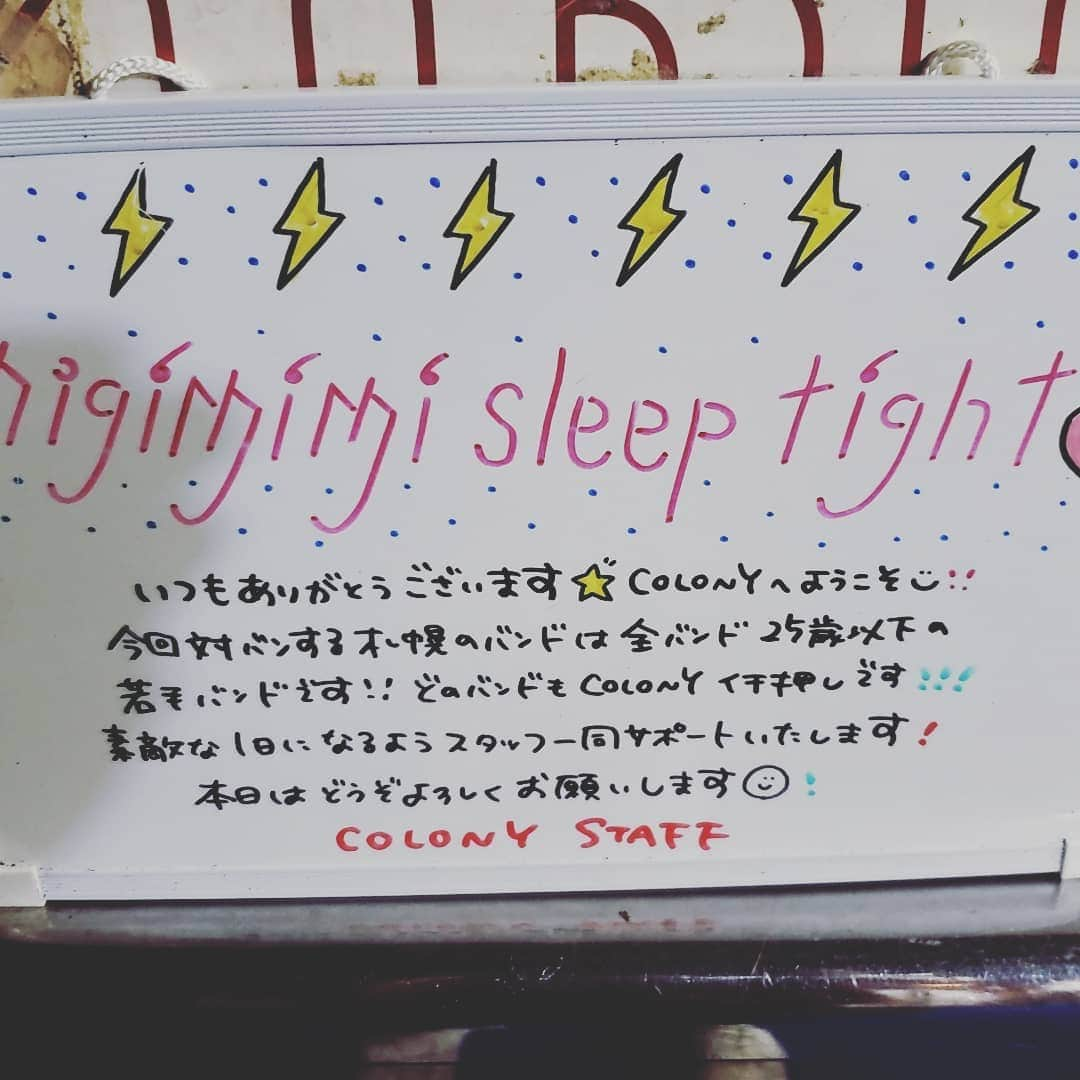 nigimimi sleep tight
いつもありがとうございます COLONYへようこそ!!
今回対バンする札幌のバンドは全バンド25歳以下の
若手バンドです!! どのバンドもCOLONYイチ押しです!!!
素敵な1日になるようスタッフ一同サポートいたします!
本日はどうぞよろしくお願いします!
COLONY STAFF